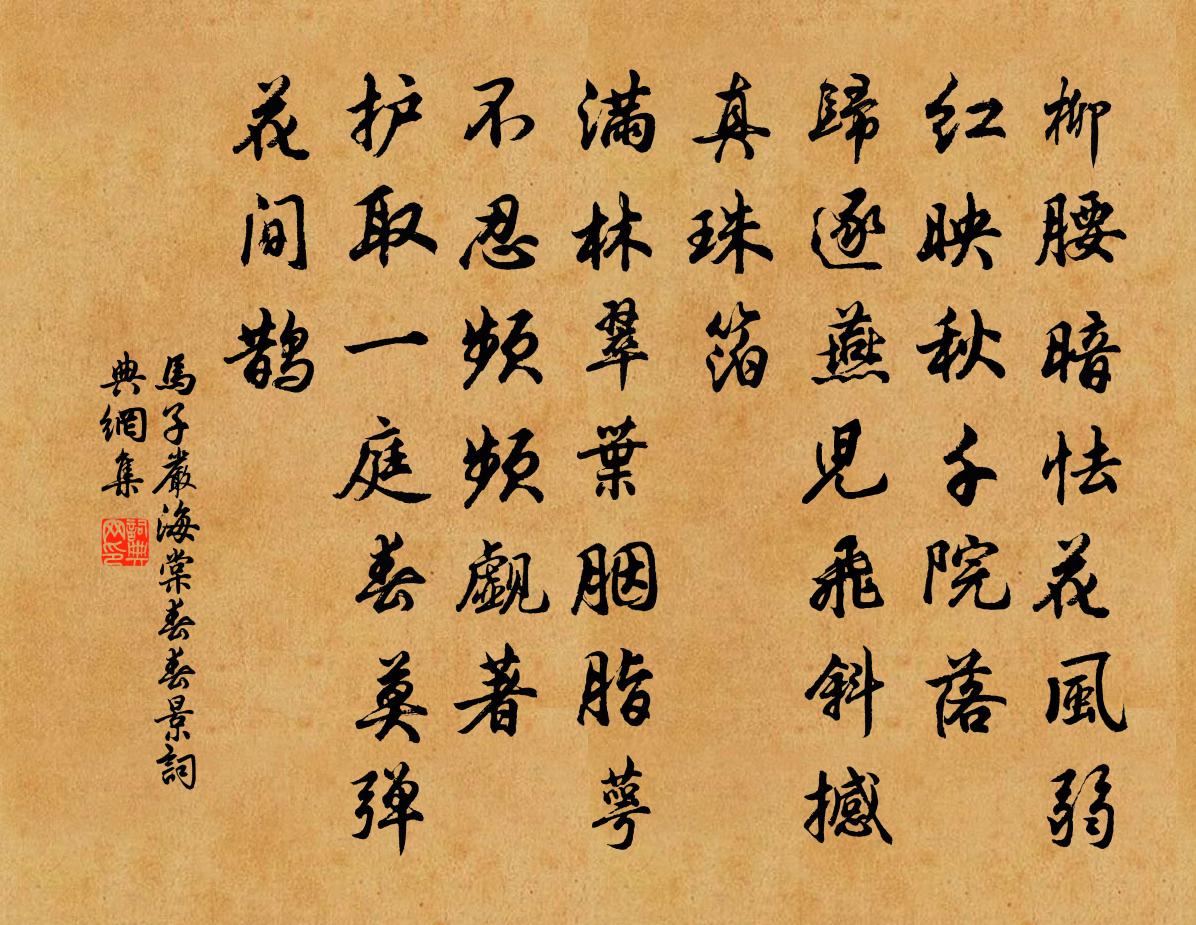 柳腰暗怯花風弱
红映秋千院落
歸逐燕兒飛斜撼
真珠箔
满林翠葉胭脂萼
不忍頻頻覷著
护取一庭春莫弹
花间鹊
馬子嚴海棠春春景詞
典網集
詞典
网印